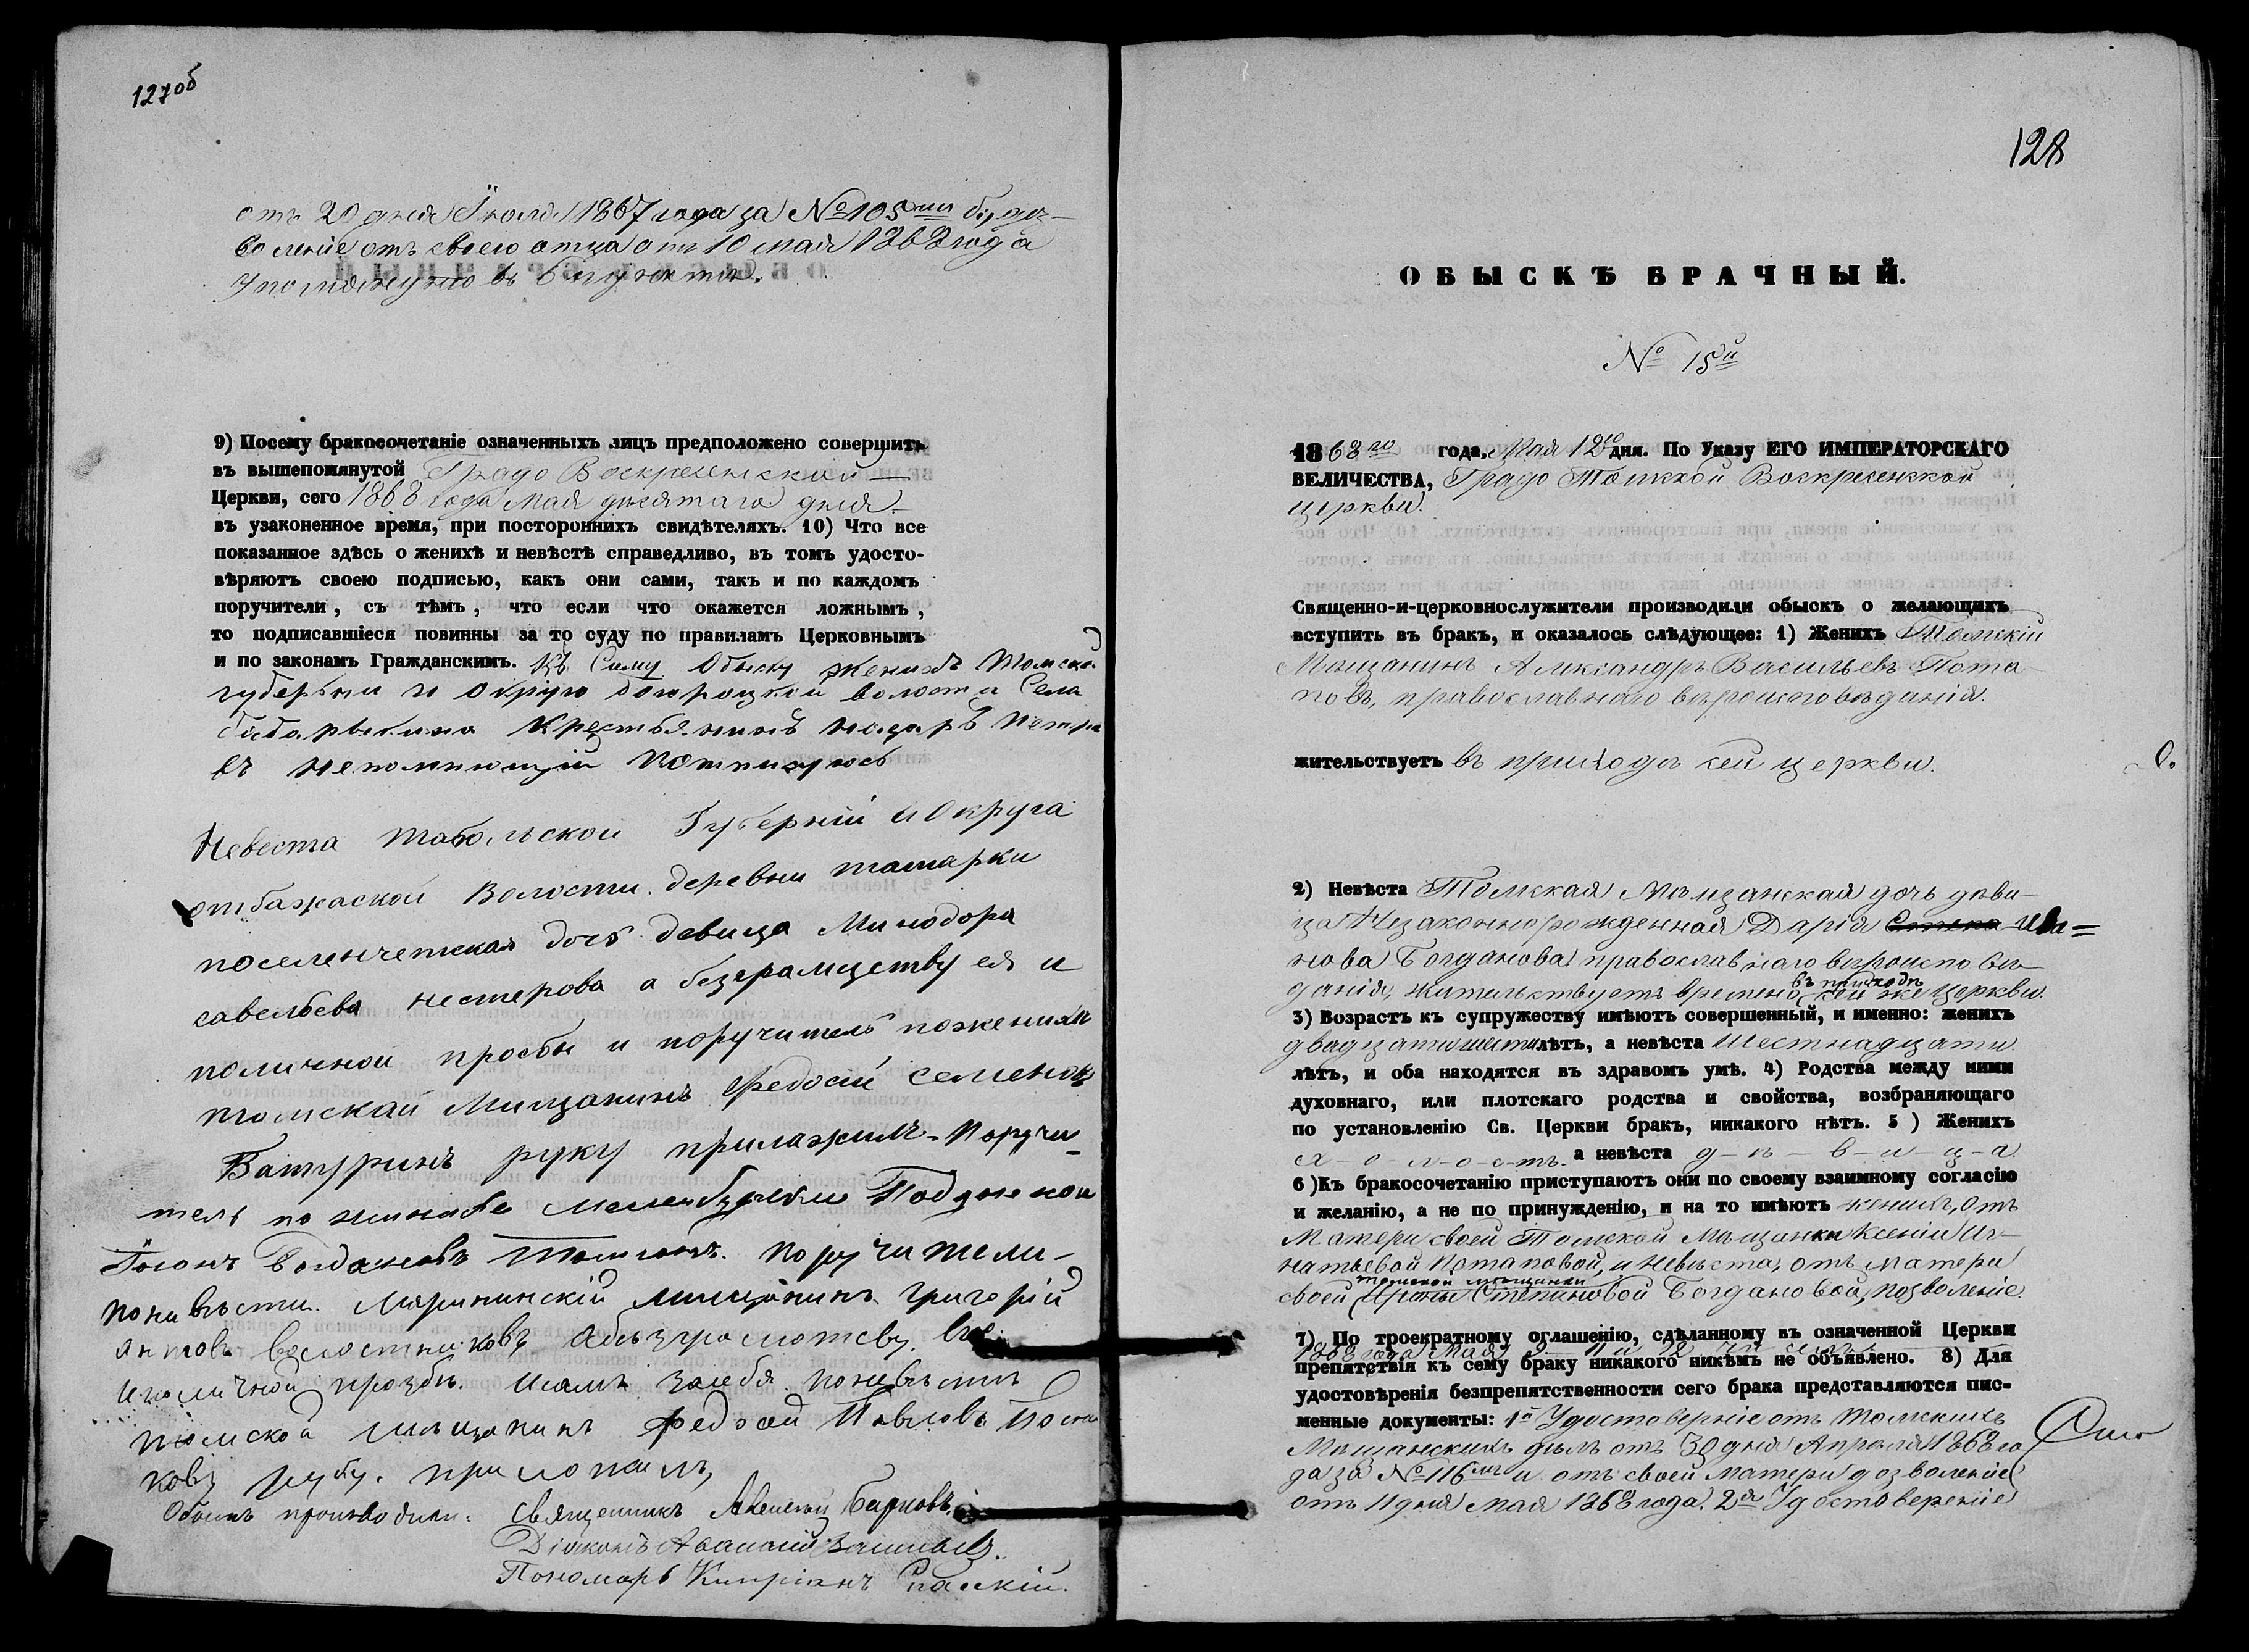 127об
отъ 20 дня Іюля 1867 года за № 105мъ
воленіе отъ своего отца отъ 10 мая 1868 года
9) Посему бракосочетаніе означенныхъ лицъ предположено совершить
въ вышепомянутой Градо Воскресенской
Церкви, сего 1868 года Мая десятаго дня
въ узаконенное время, при постороннихъ свидѣтеляхъ. 10) Что все
показанное здѣсь о женихѣ и невѣстѣ справедливо, въ томъ удосто-
вѣряютъ своею подписью, какъ они сами, такъ и по каждомъ
поручители, съ тѣмъ, что если что окажется ложнымъ,
то подписавшіеся повинны за то суду по правиламъ Церковнымъ
и по законамъ Гражданскимъ. Къ Сему Обыску женихъ Томско
губерніи и округи волости Села
Крестьянинъ Петро
въ непомнющій
Невеста Тобольской Губерніи и Округа
Волости деревни татарки
поселенческая дочь девица Минодора
савельева нестерова а безграмцству ея и
поличной прозбы и поручитель по женихи
томскай Мищанинъ Федосіи семеновъ
Батуринъ руку прилажилъ Поручи-
тель по
Богдановъ поручители
по невѣсти. Марiинскій мищанинъ Григорій
Антовъ
и по личной прозбѣ. И самъ за себя по невѣсти
томской мѣщанинъ Федоай Павловъ
ковъ руку. приложилъ,
Обыскъ производили: Священникъ Алексѣй Барковъ.
Діаконъ Аѳанасій
Пономарь Кипріанъ Спасскій.
128
ОБЫСКЪ БРАЧНЫЙ.
№ 15й
1868го года, Мая 12го дня. По Указу ЕГО ИМПЕРАТОРСКАГО
ВЕЛИЧЕСТВА, Градо Томской Воскресенской
церкви.
Священно-и-церковнослужители производили обыскъ о желающихъ
вступить въ бракъ, и оказалось слѣдующее: 1) Женихъ Томскій
Мѣщанинъ Александръ Васильевъ Пота-
повъ, православнаго вѣроисповѣданія.
жительствуетъ въ приходѣ сей церкви.
2) Невѣста Томская Мѣщанская дочь дѣви-
ца Незаконнорожденная Дарія Степа Ива=
нова Богданова православнаго вѣроисповѣ-
въ приходѣ
данія, жительствуетъ времено сей же церкви.
3) Возрастъ къ супружеству имѣютъ совершенный, и именно: женихъ
двадцати шести лѣтъ, а невѣста Шестнадцати
лѣтъ, и оба находятся въ здравомъ умѣ. 4) Родства между ними
духовнаго, или плотскаго родства и свойства, возбраняющаго
по установленію Св. Церкви бракъ, никакого нѣтъ. 5) Женихъ
х-о-л-о-с-тъ. а невѣста д-ѣ-в-и-ц-а.
6) Къ бракосочетанію приступаютъ они по своему взаимному согласію
и желанію, а не по принужденію, и на то имѣютъ женихъ, отъ
Матери своей Томской Мѣщанки Ксеніи Иг-
натьевой Потаповой, и невѣста, отъ матери
томской мѣщанки
своей Ирины Степановой Богдановой, позволеніе.
7) По троекратному оглашенію, сдѣланному въ означенной Церкви
1868 года Мая 9 11 и 12 чиселъ
препятствія къ сему браку никакого никѣмъ не объявлено. 8) Для
удостовѣренія безпрепятственности сего брака представляются пис-
менные документы: 1й Удостоверніе отъ Томскихъ
Мѣщанскихъ дѣлъ отъ 30 дня Апрѣля 1868 го
да за № 116мъ и отъ своей матери дозволеніе
отъ 11 дня Мая 1868 года. 2е Удостовереніе